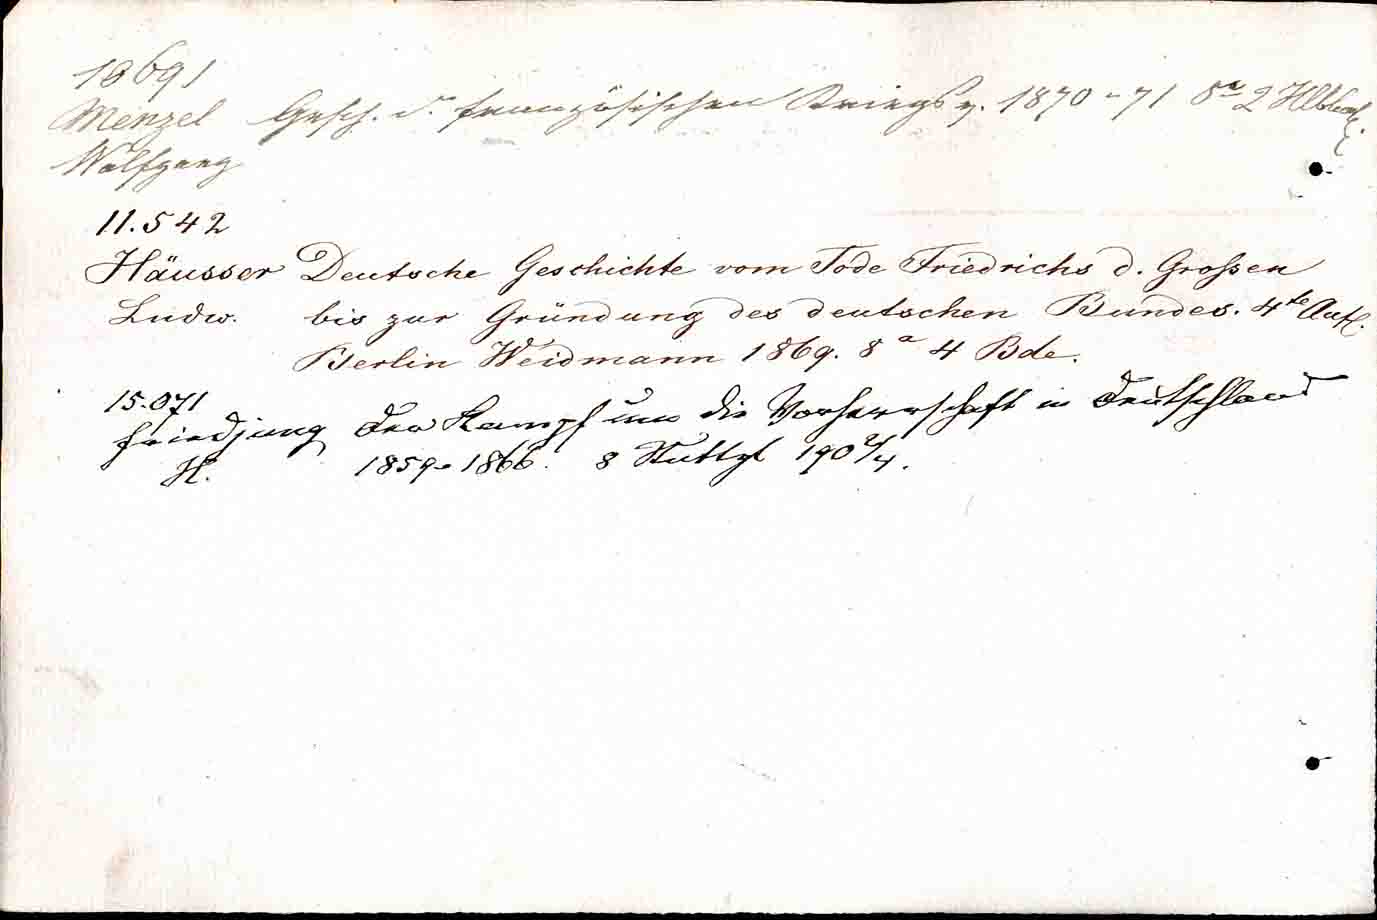 10691
Menzel Gesch. d. französischen Kriegs v. 1870-71 8° 2
Wolfgang
11.542
Häusser Deutsche Geschichte vom Tode Friedrichs d. Großen
Ludw. bis zur Gründung des deutschen Bundes. 4te Aufl.
Berlin Weidmann 1869. 8° 4 Bde.
15.071
Friedjung Der Kampf um die Vorherrschaft in Deutschland
H. 1859-1866. 8 Stuttgt